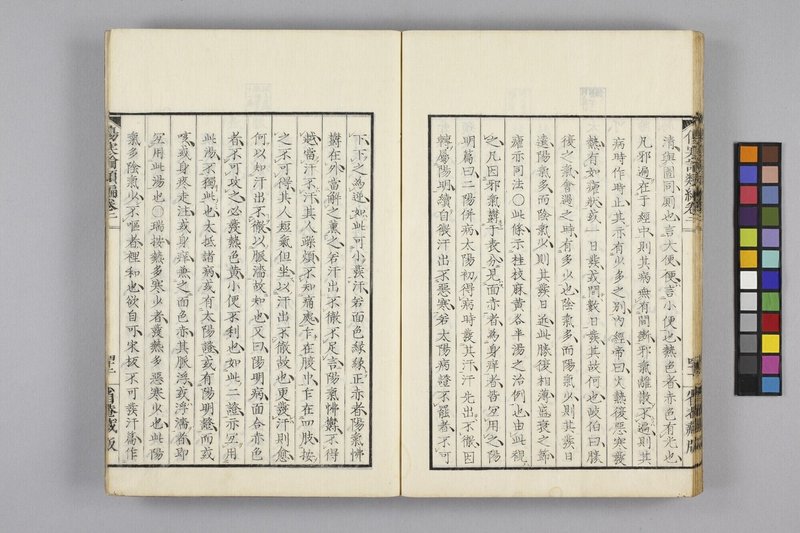 清與圊同厠也言大便便言小便也熱色者赤色有光也
凡邪過在于經中則其病無有間斷邪氣離散不遍則其
病時作時止其亦有少多之別內經帝曰火熱復惡寒發
熱有如瘧狀或一日發或間數日發其故何也岐伯曰勝
復之氣會遇之時有多少也陰氣多而陽氣少則其發日
遠陽氣多而陰氣少則其發日近此勝復相薄盛衰之節
瘧亦同法○此條示桂枝麻黃各半湯之治例也由此視
之凡因邪氣欝于表分見面赤者為身痒者皆宜用之陽
明篇曰二陽併病太陽初得病時發其汗汗先出不徹因
轉屬陽明續自微汗出不惡寒若太陽病證不罷者不可
下下之為逆如此可小發汗若面色緣緣正赤者陽氣怫
欝在外當解之熏之若汗出不徹不足言陽氣怫欝不得
越當汗不汗其人躁煩不知痛處乍在腹中乍在四肢按
之不可得其人短氣但坐以汗出不徹故也更發汗則愈
何以知汗出不徹以脈濇故知也又曰陽明病面合赤色
者不可攻之必發熱色黃小便不利也如此二證亦宜用
此湯不獨此也大抵諸病或有太陽證或有陽明證而或
咳或身疼走注或身痒無之而色赤其脈浮或浮濇者即
宜用此湯也○瑞按熱多寒少者發熱多惡寒少也此陽
氣多陰氣少不嘔者裡和也欲自可宋板不可發汗為作
傷寒論類編卷二